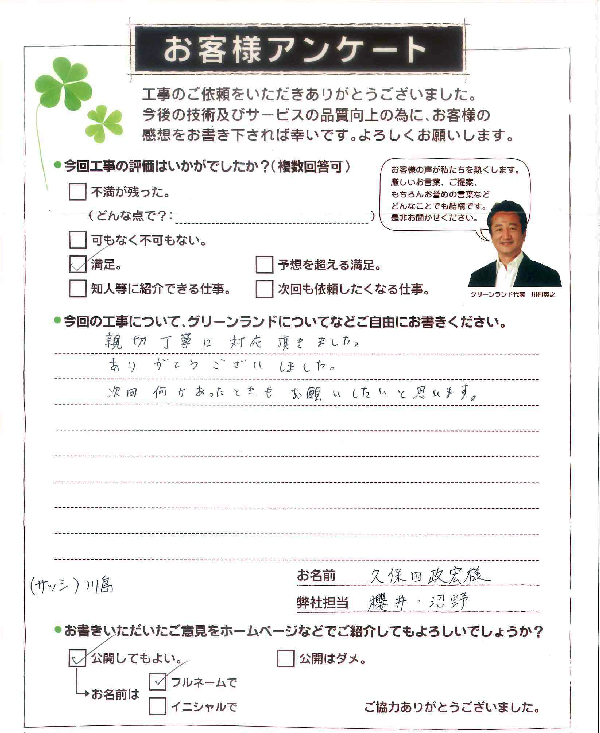 お客様アンケート
工事のご依頼をいただきありがとうございました。
今後の技術及びサービスの品質向上の為に、お客様の
感想をお書き下されば幸いです。よろしくお願いします。
今回工事の評価はいかがでしたか?(複数回答可)
お客様の声が私たちを熱くします。
厳しいお言葉、ご提案、
もちろんお誉めの言葉など
どんなことでも結構です。
是非お聞かせください。
不満が残った。
(どんな点で?: )
可もなく不可もない。
満足。
予想を超える満足。
知人等に紹介できる仕事。
次回も依頼したくなる仕事。
グリーンランド代表
今回の工事について、グリーンランドについてなどご自由にお書きください。
親切丁寧に対応頂きました。
ありがとうございました。
次回何かあったときもお願いしたいと思います。
(サッシ)川島
お名前 久保田政宏様
弊社担当 櫻井・沼野
お書きいただいたご意見をホームページなどでご紹介してもよろしいでしょうか?
公開してもよい。
公開はダメ。
お名前は
フルネームで
イニシャルで
ご協力ありがとうございました。